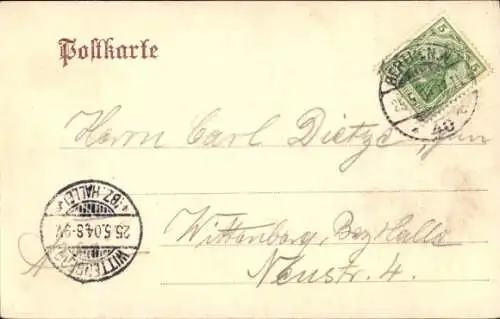 Postkarte
5 5
BERLIN, N.W.
40
Herrn Carl Dietze jun
(BZ. HALLE)
25.5.04.8-9V.
WITTENBERG
Wittenberg, Bez Halle
Neustr. 4.